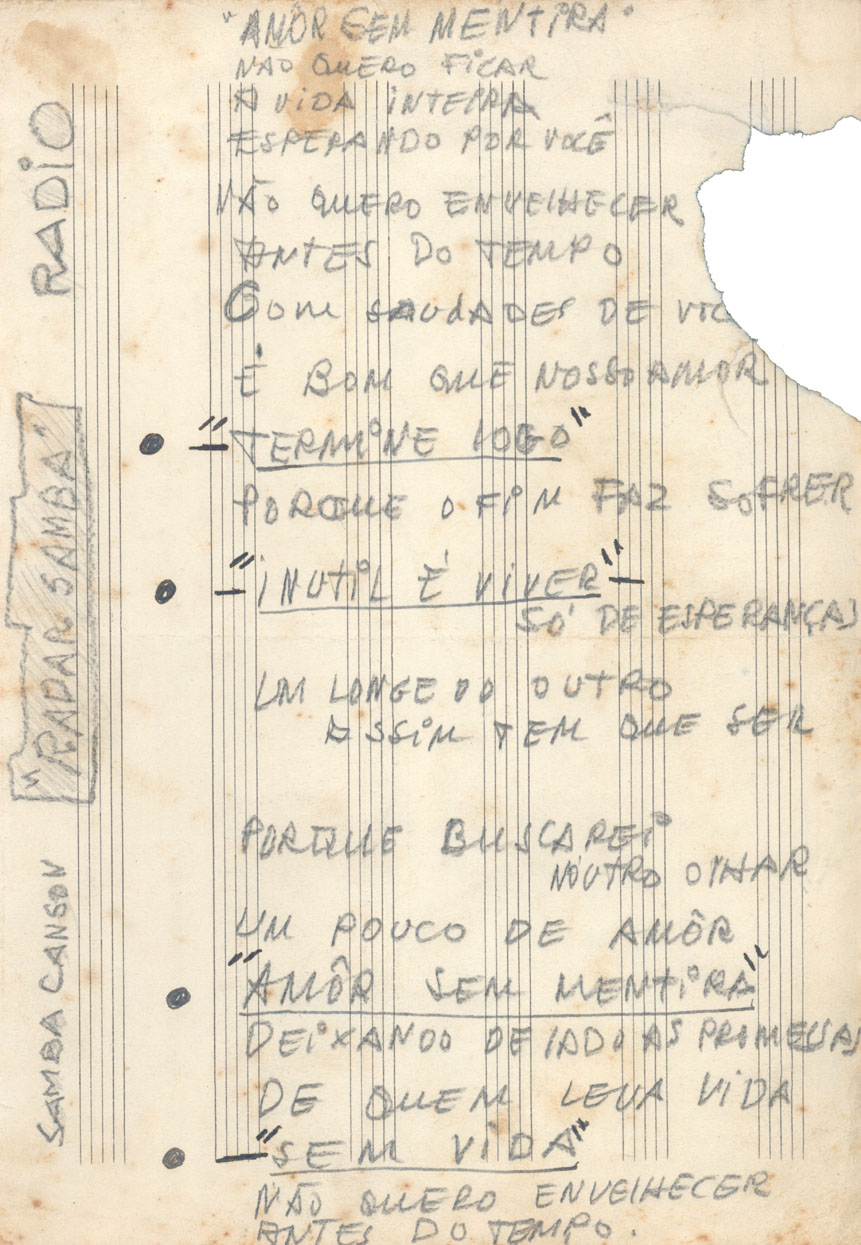 "AMÔR SEM MENTIRA"
NAO QUERO FICAR
A VIDA INTEIRA
ESPERANDO POR VOCÊ
NÃO QUERO ENVELHECER
ANTES DO TEMPO
COM SAUDADES DE VOC
É BOM QUE NOSSO AMOR
— "TERMINE LOGO"
PORQUE O FIM FAZ SOFRER
— "INUTIL É VIVER" —
SÓ DE ESPERANÇAS
UM LONGE DO OUTRO
ASSIM TEM QUE SER
PORQUE BUSCAREI
NOUTRO OLHAR
UM POUCO DE AMÔR
"AMÔR SEM MENTIRA"
DEIXANDO DE LADO AS PROMESSAS
DE QUEM LEVA VIDA
— "SEM VIDA"
NÃO QUERO ENVELHECER
ANTES DO TEMPO.
RADIO
"RADAR SAMBA"
SAMBA CANSON